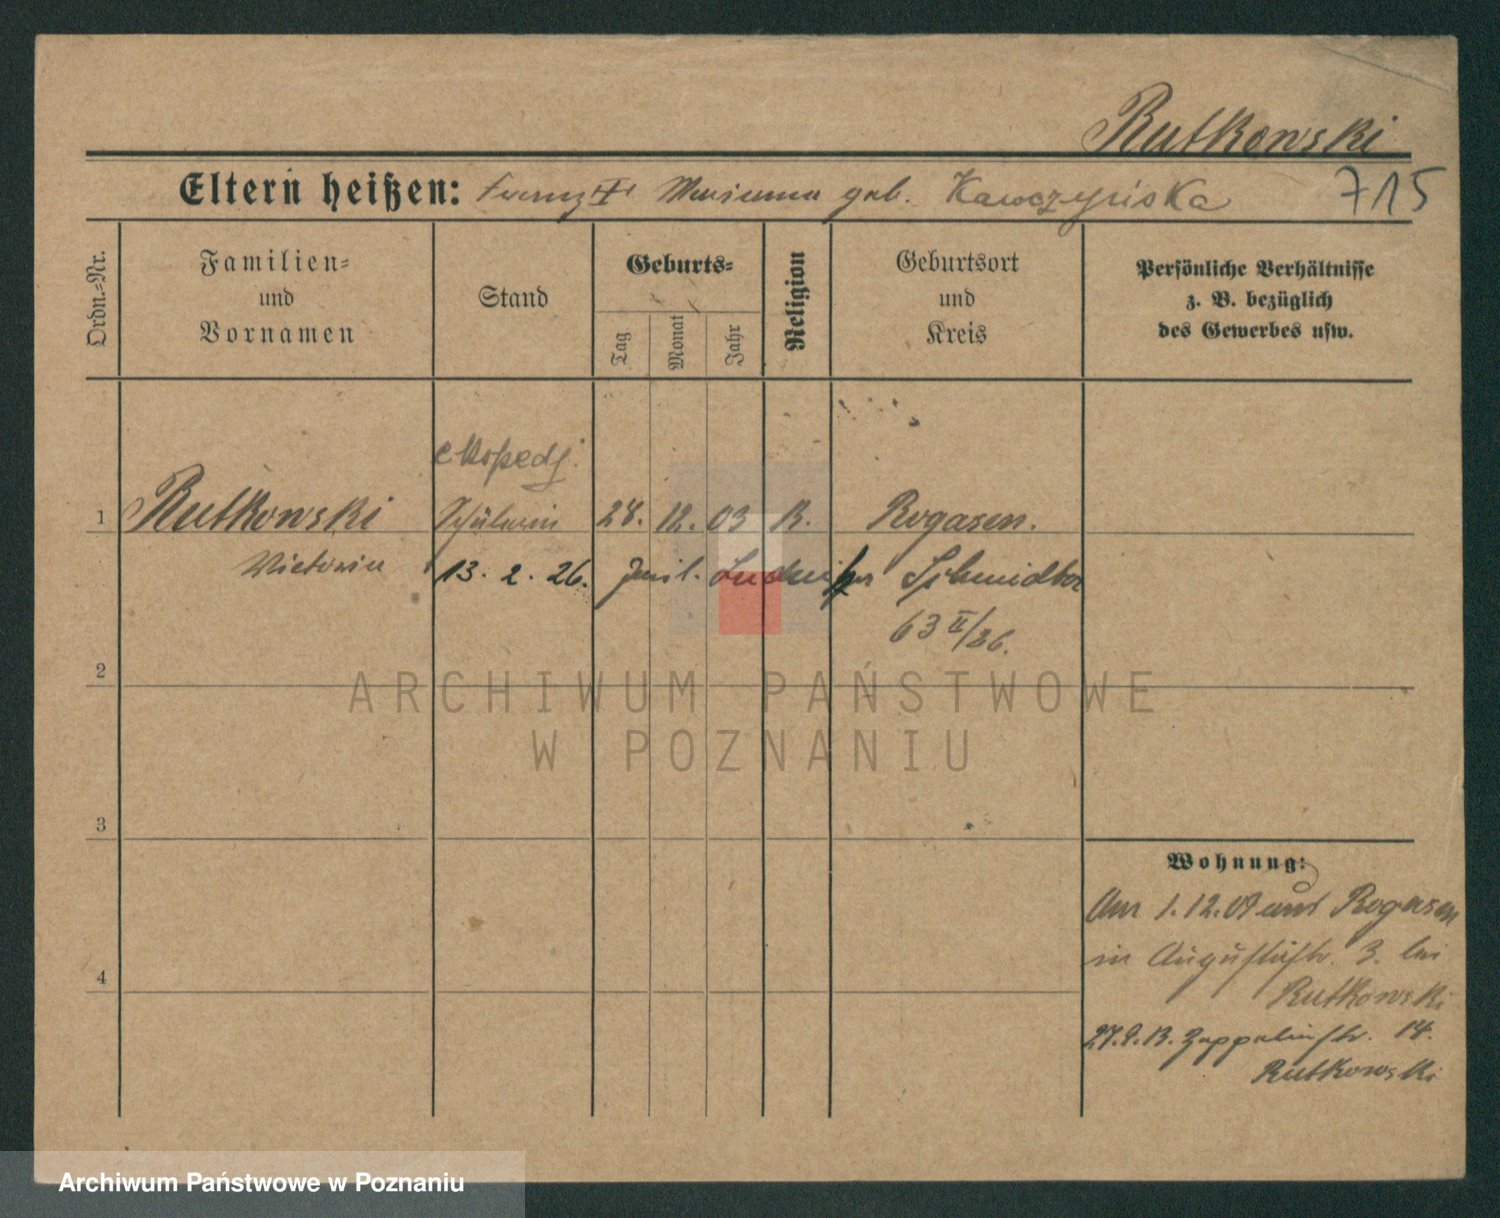 Rutkowski
Eltern heißen: Franz + Marianna geb. Kawczyńska
715
Ordn.-Nr.
Familien-
und
Vornamen
Stand
Geburts-
Tag
Monat
Jahr
Religion
Geburtsort
und
Kreis
Persönliche Verhältnisse
z. B. bezüglich
des Gewerbes usw.
ekspedj.
1 Rutkowski Schülerin 28. 12. 03 R. Rogasen.
Victoria 13. 2. 26. Schmidtov
63 II/26.
2
3
4
Wohnung:
Am 1.12.09 aus Rogasen
in Augustastr. 3. bei
Rutkowski
27.9.13. Zeppelinstr. 14.
Rutkowski
ARCHIWUM PAŃSTWOWE
W POZNANIU
Archiwum Państwowe w Poznaniu